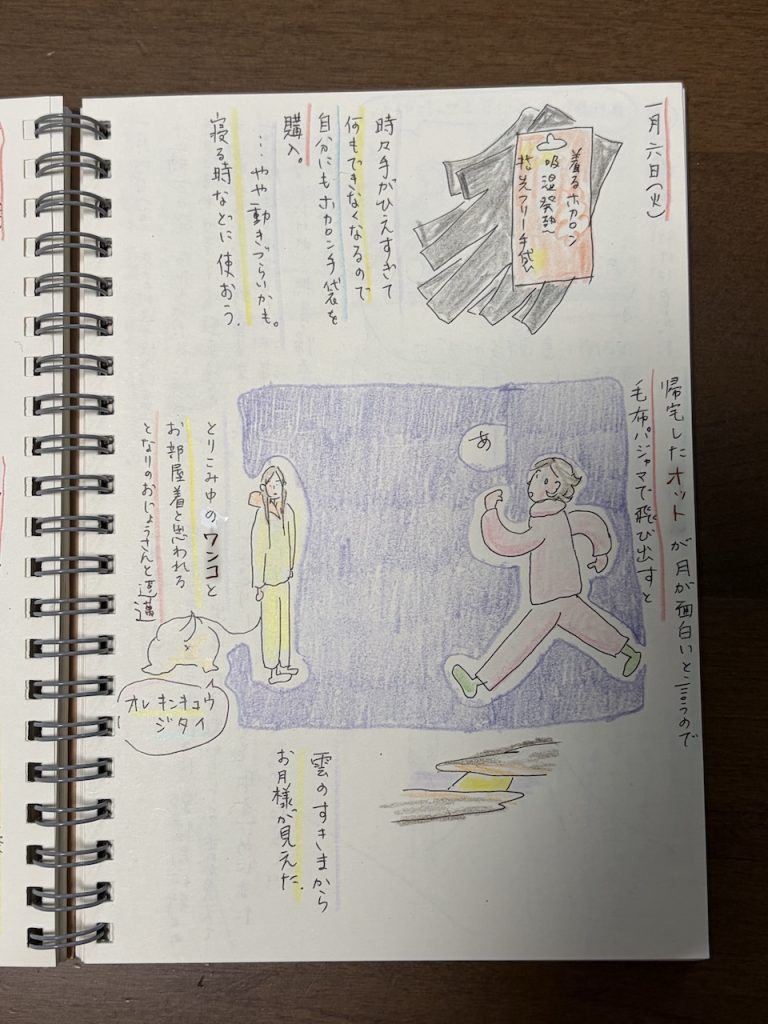 一月六日(火)
着るホカロン
吸湿発熱
指先フリー手袋
時々手がひえすぎて
何もできなくなるので
自分にもホカロン手袋を
購入。
…やや動きづらいかも。
寝る時などに使おう。
帰宅したオットが月が面白いと言うので
毛布パジャマで飛び出すと
あ
とりこみ中のワンコと
お部屋着と思われる
となりのおじょうさんと遭遇
オレキンキュウ
ジタイ
雲のすきまから
お月様が見えた。